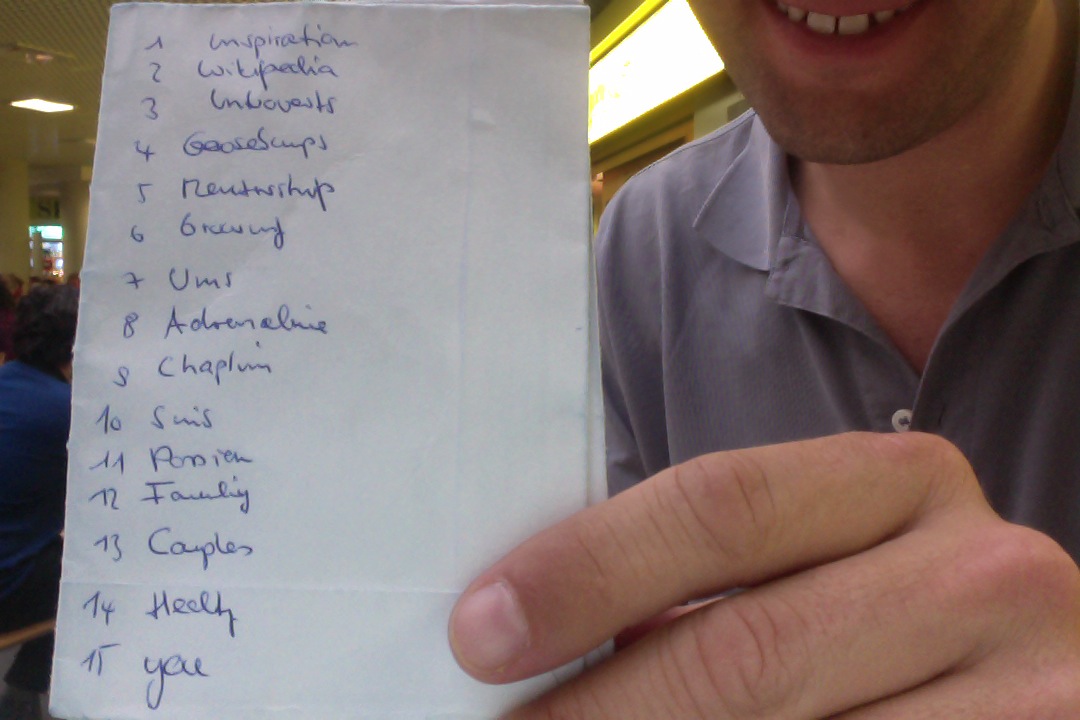 1 Inspiration
2 Wikipedia
3 Introverts
4 Goosebumps
5 Mentorship
6 Growing
7 Ums
8 Adrenaline
9 Chaplin
10
11 Passion
12 Family
13 Couples
14 Health
15 you